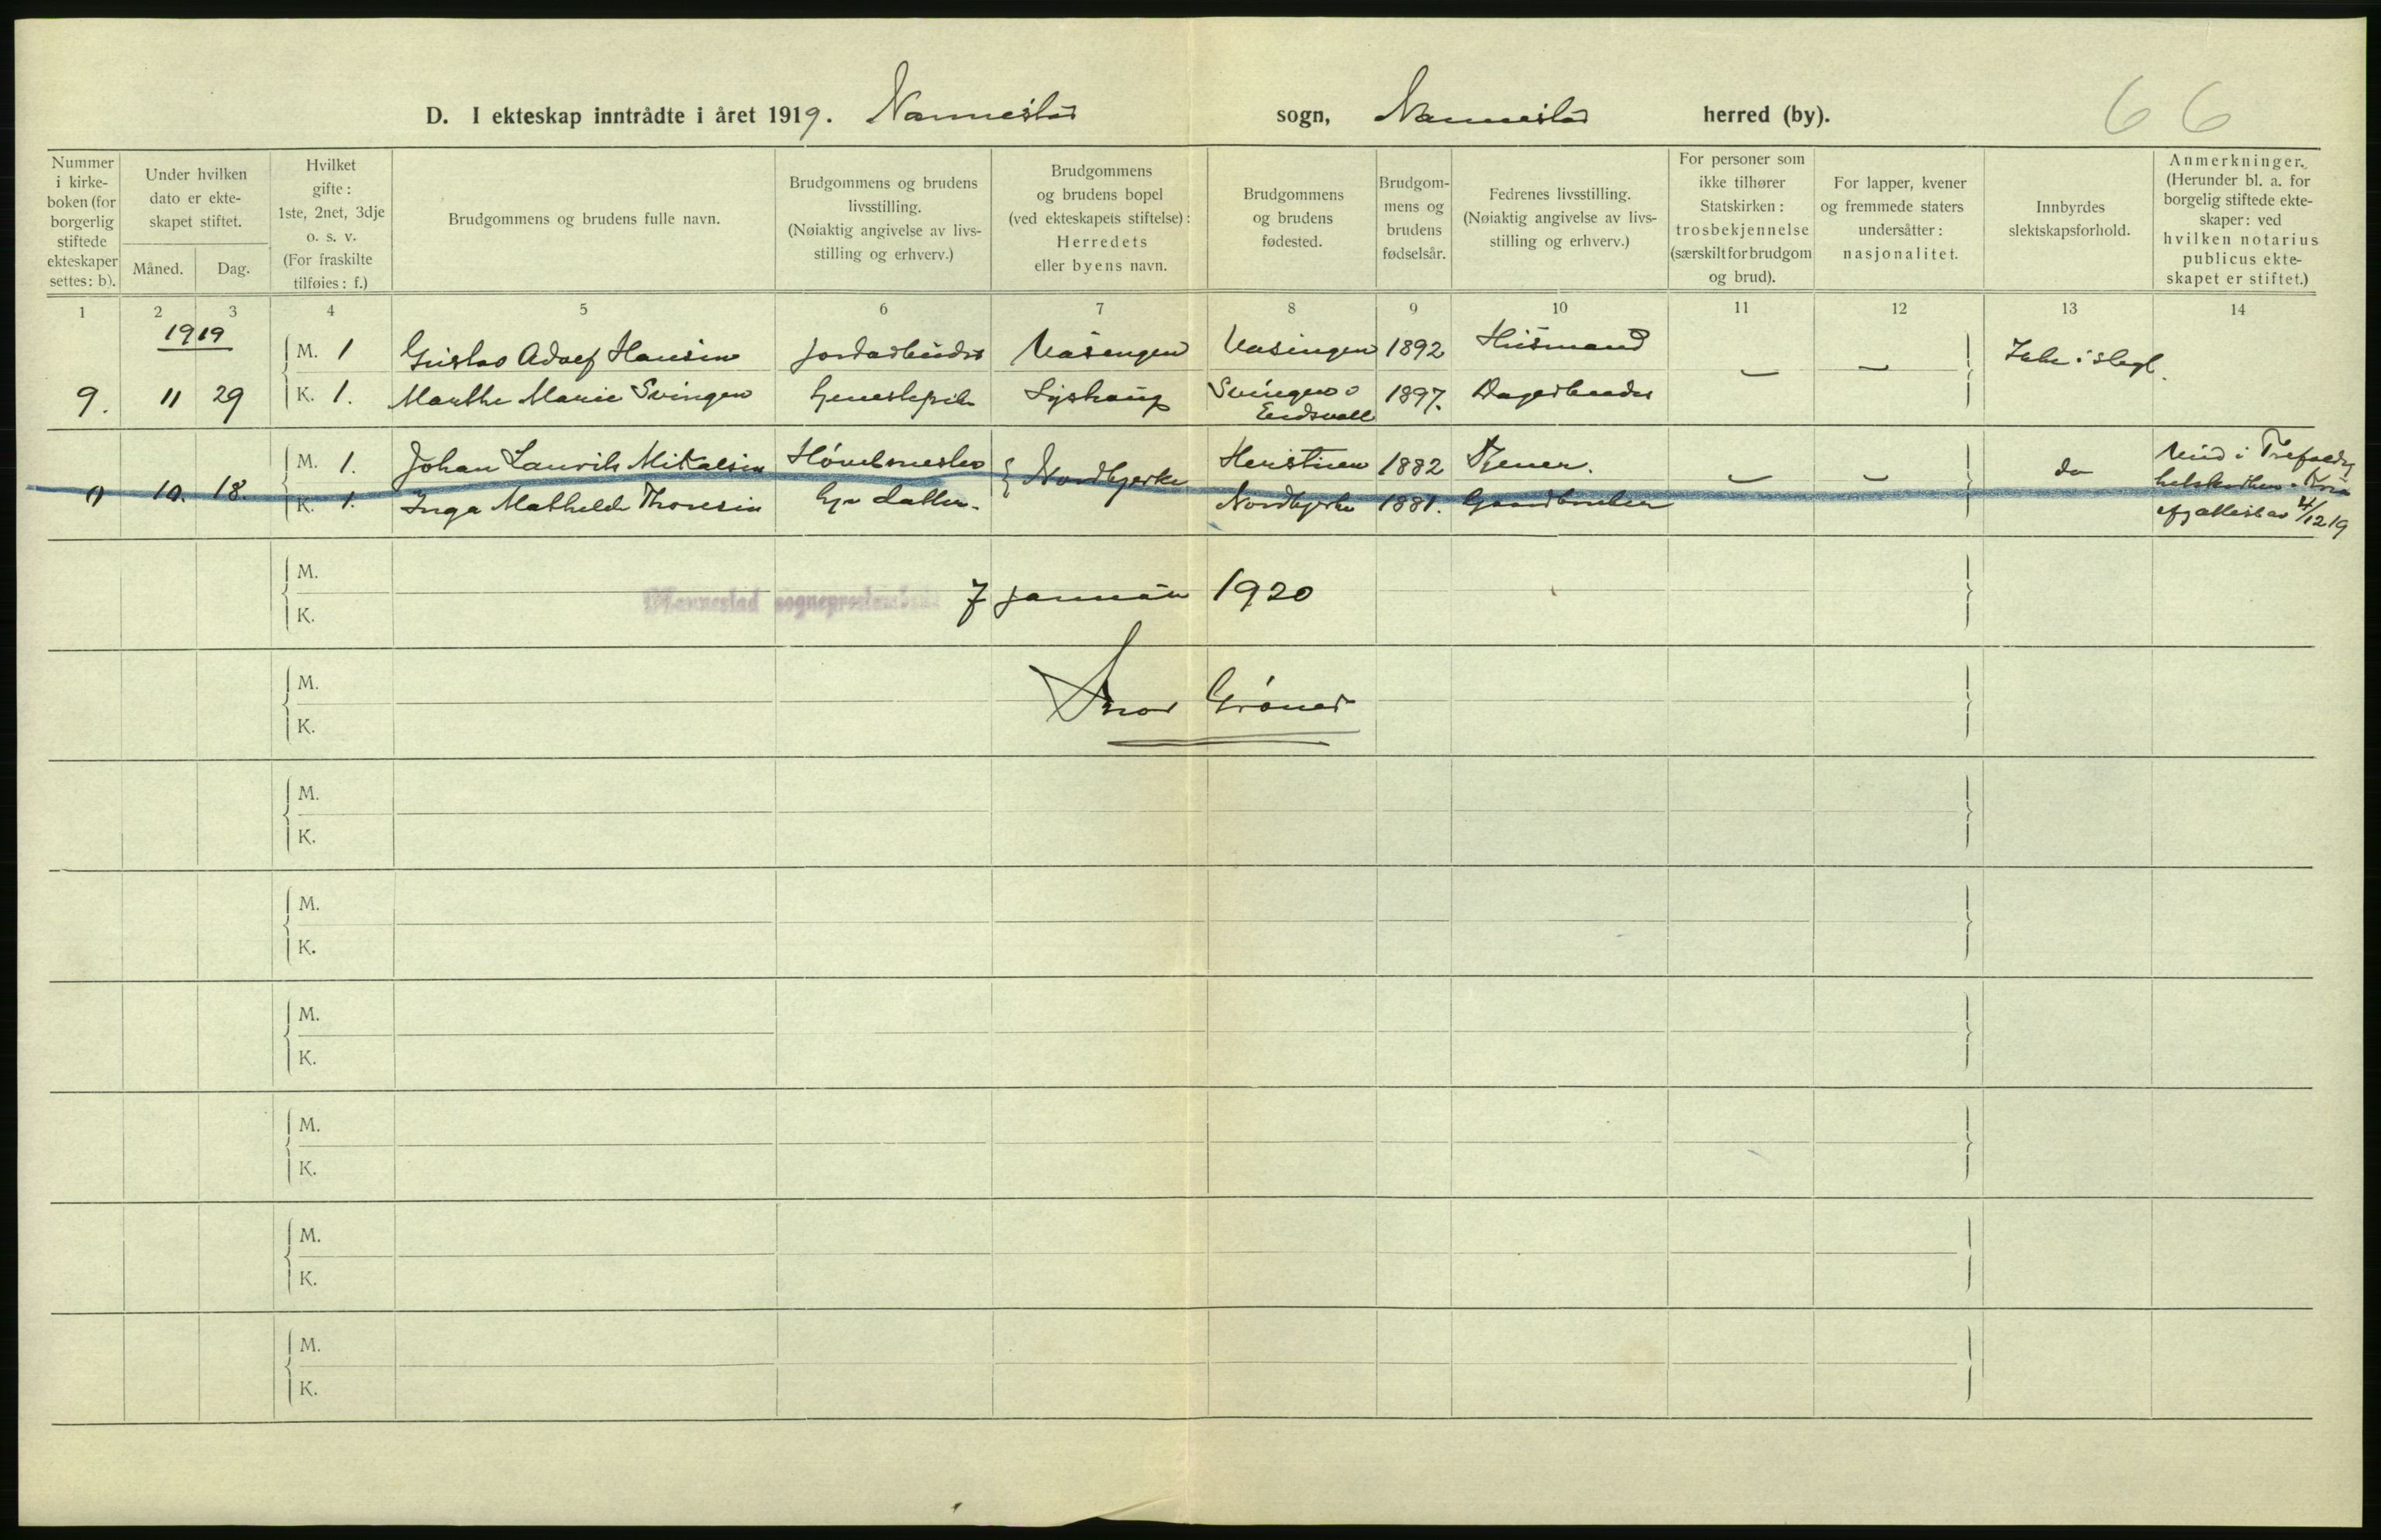 D. I ekteskap inntrådte i året 1919. Nannestad sogn, Nannestad herred (by). 66
Nummer i kirke- boken (for borgerlig stiftede ekteskaper settes: b).
Under hvilken dato er ekte- skapet stiftet.
Måned. Dag.
Hvilket gifte: 1ste, 2net, 3dje o. s. v. (For fraskilte tilføies: f.)
Brudgommens og brudens fulle navn.
Brudgommens og brudens livsstilling. (Nøiaktig angivelse av livs- stilling og erhverv.)
Brudgommens og brudens bopel (ved ekteskapets stiftelse): Herredets eller byens navn.
Brudgommens og brudens fødested.
Brudgom- mens og brudens fødselsår.
Fedrenes livsstilling. (Nøiaktig angivelse av livs- stilling og erhverv.)
For personer som ikke tilhører Statskirken: trosbekjennelse (særskilt for brudgom og brud).
For lapper, kvener og fremmede staters undersåtter: nasjonalitet.
Innbyrdes slektskapsforhold.
Anmerkninger. (Herunder bl. a. for borgelig stiftede ekte- skaper: ved hvilken notarius publicus ekte- skapet er stiftet.)
1 2 3 4 5 6 7 8 9 10 11 12 13 14
1919
M. 1 Gustav Adolf Hansen Jordarbeider Aasengen Aasengen 1892 Husmand — — Ikke i slegt.
9. 11 29 K. 1. Marthe Marie Svingen Lyshaug Svingen i Eidsvall 1897. Dagarbeider
M. 1. Johan Laurits Mikalsen Høvelmester Nordbyerke 1882 — — do
0 10. 18. K. 1. Inga Mathilde Thoresen Gp. datter. Nordbyerke 1881. Gaardbruker
Viet i Trefoldig
4/12 19
M.
Nannestad sogneprestembede 7 januar 1920
K.
M.
Grøner
K.
M.
K.
M.
K.
M.
K.
M.
K.
M.
K.
M.
K.